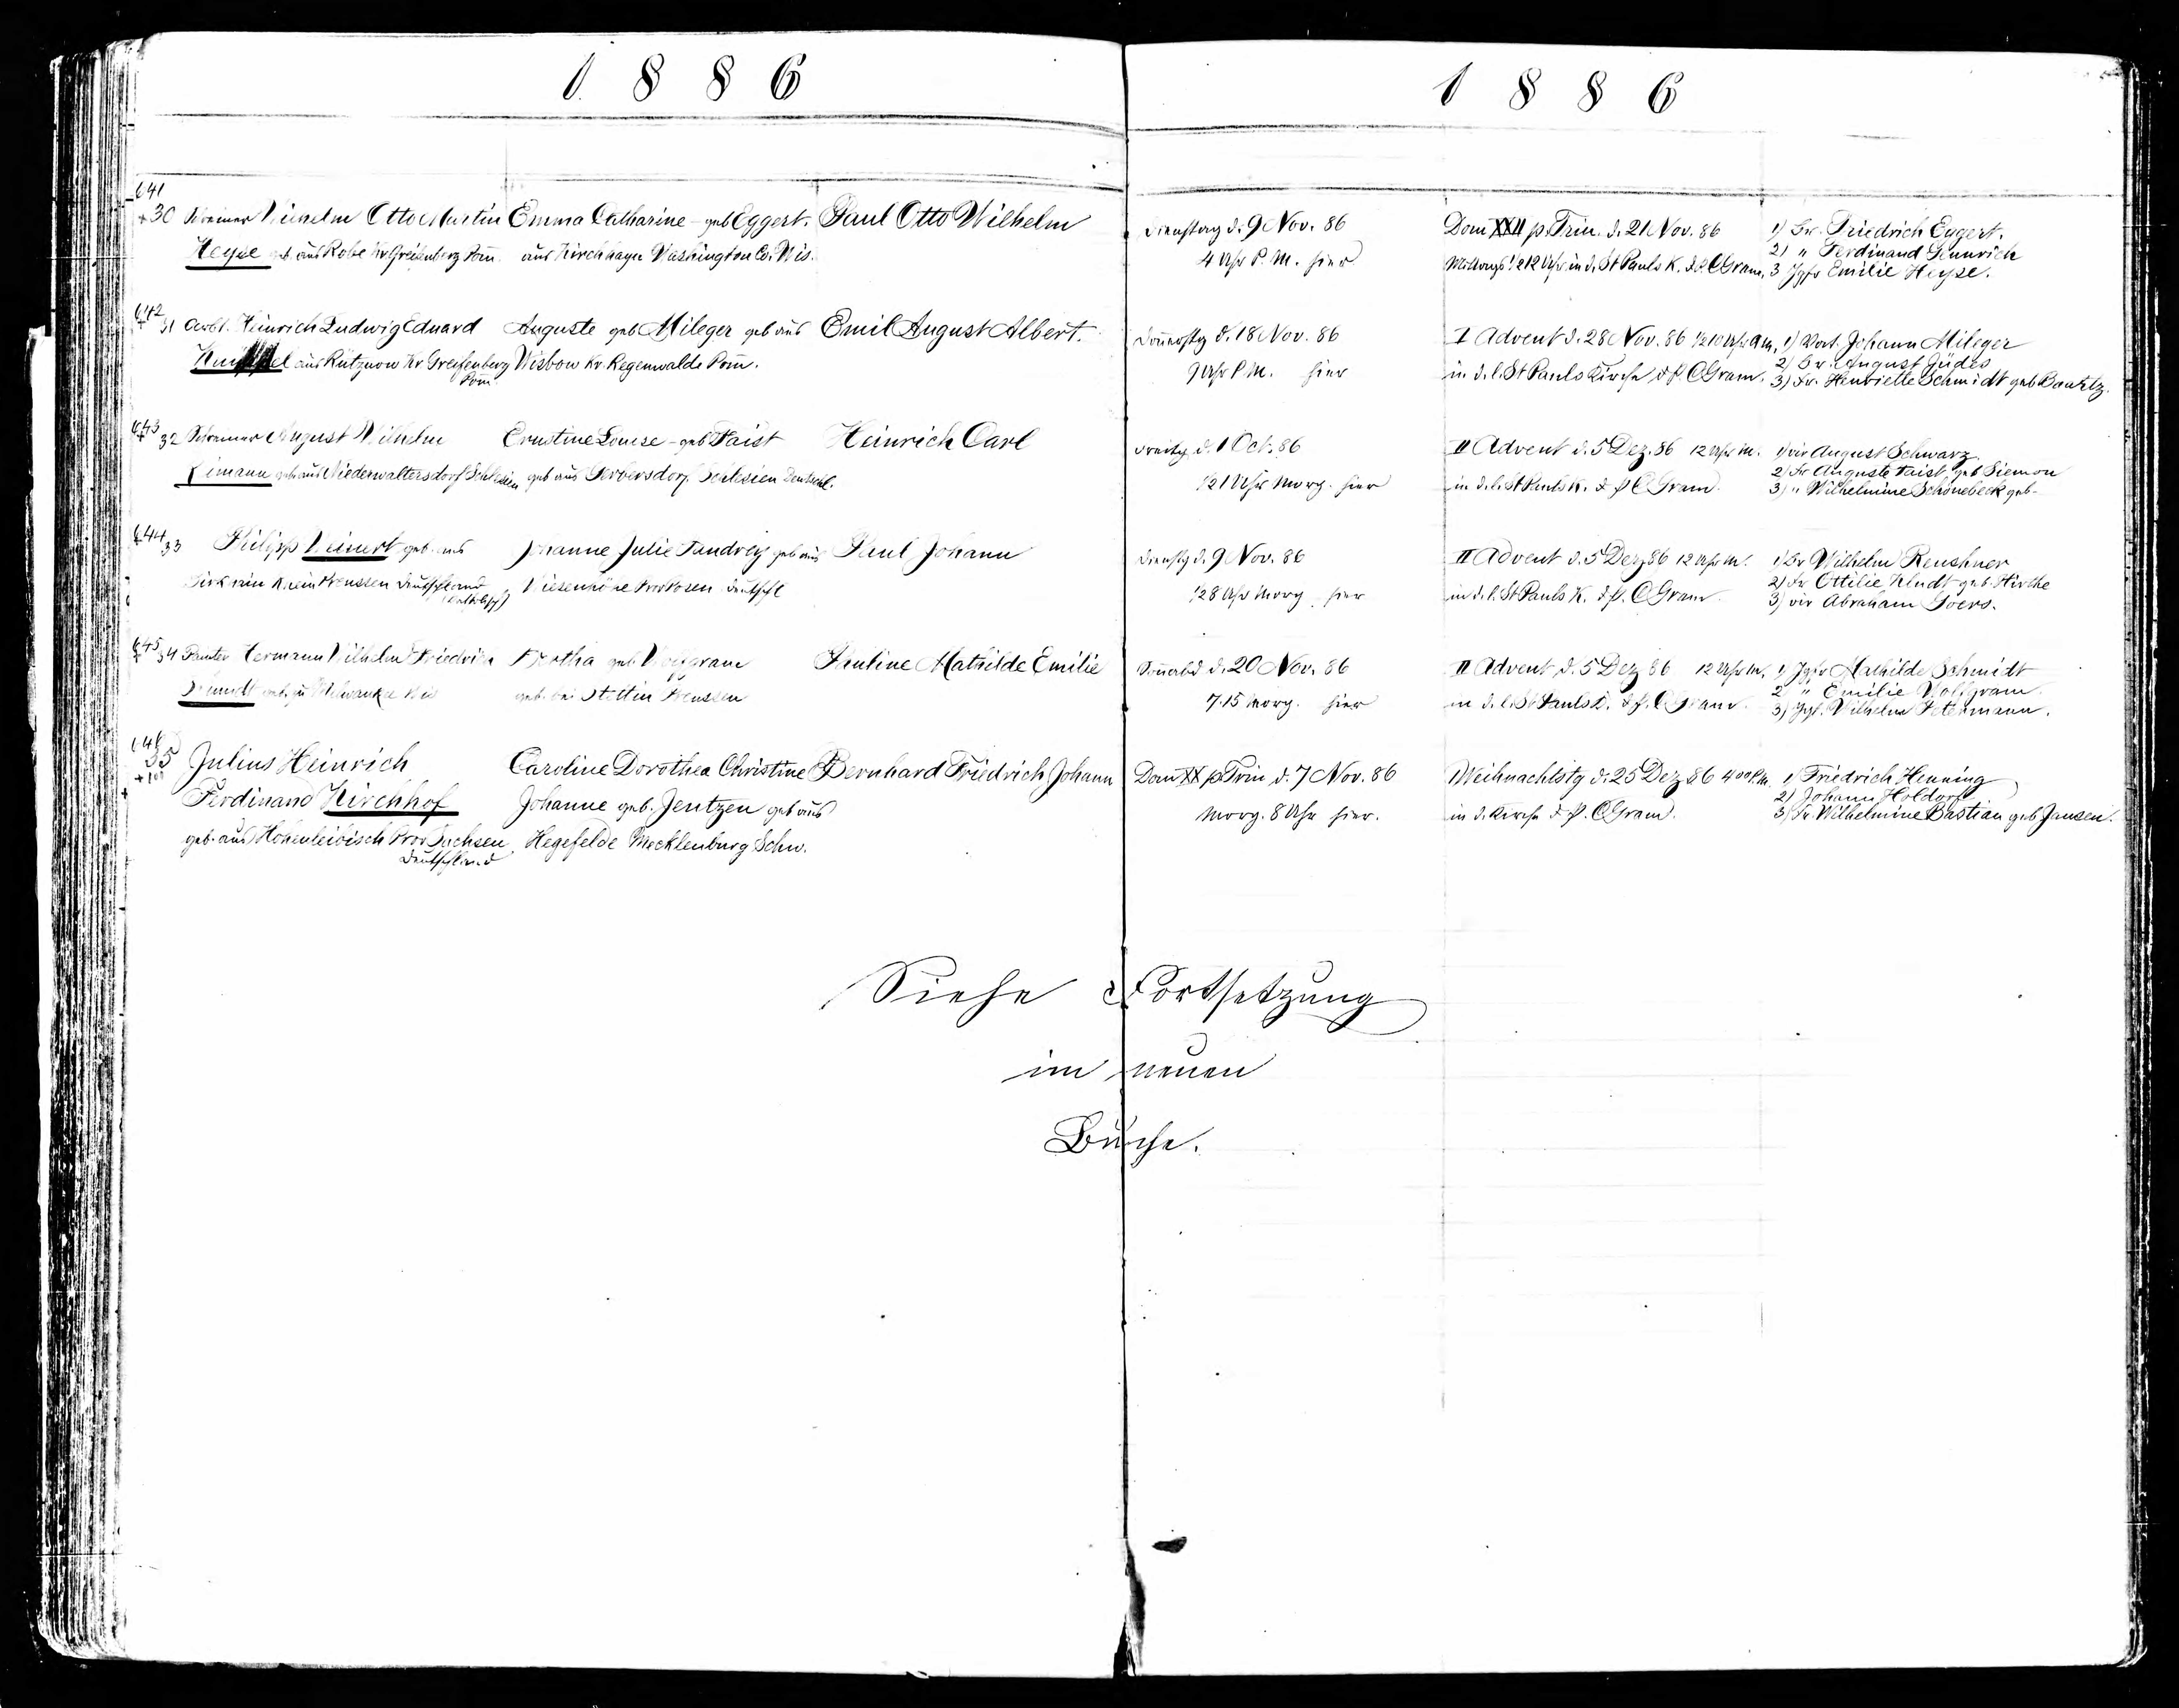 1886
1886
641
30 Wilhelm Otto Martin Emma Catharine geb Eggert. Paul Otto Wilhelm
Heyse geb aus Robe Kr. Greifenberg Pom. aus Kirchhayn Washington Co. Wis.
Dienstag d. 9 Nov. 86
4 Uhr P. M. hier
Dom XXII p. Trin. d. 21 Nov. 86
Mittags 1/2 12 Uhr in d. St Pauls K. d. P. CGram.
1) Hr. Friedrich Eggert.
2) " Ferdinand
3 Jgfr Emilie Heyse.
642
31 Arbt. Heinrich Ludwig Eduard Auguste geb Mileger geb aus Emil August Albert.
aus Rütznow Kr. Greifenberg Wisbow Kr. Regenwalde Pom.
Pom
Donnerstg d. 18 Nov. 86
9 Uhr P M. hier
I Advent d. 28 Nov. 86 1/2 10 Uhr A M.
in d. l. St Pauls Kirche d P. CGram.
1) Johann Mileger
2) Hr. August Jüdes
3) Fr. Henriette Schmidt geb
643
32 August Wilhelm Ernstine Louise geb Faist Heinrich Carl
geb aus Niederwaltersdorf Schlesien geb aus Schlesien Deutschl.
Freitg d. 1 Oct. 86
1/2 1 Uhr Morg. hier
II Advent d. 5 Dez. 86 12 Uhr M.
in d. l. St Pauls K. d P CGram.
1) August Schwarz
2) Fr Auguste Faist geb Siemon
3) " Wilhelmine Schönebeck geb-
644
33 Philipp Weinert geb. aus Johanne Julie geb aus Paul Johann
Preussen Deutschland Prov Posen Deutschl
(katholisch)
Dienstg d. 9 Nov. 86
1/2 8 Uhr Morg hier
II Advent d. 5 Dez 86 12 Uhr M.
in d. l. St Pauls K. d P. CGram.
1) Hr Wilhelm Renshner
2) Fr Ottilie Kludt geb. Hirthe
3) Abraham Goers.
645
34 Hermann Wilhelm Friedrich Bertha geb Wolfgram Pauline Mathilde Emilie
Schmidt geb. zu Milwaukee Wis geb. bei Stettin Preussen
Sonnabd d. 20 Nov. 86
7.15 Morg. hier
II Advent d. 5 Dez 86 12 Uhr M.
in d. l. St Pauls K. d P. CGram.
1) Jgfr Mathilde Schmidt
2 " Emilie Wolfgram.
3) Jgl. Wilhelm Petermann.
646
35 Julius Heinrich Caroline Dorothea Christine Bernhard Friedrich Johann
Ferdinand Kirchhof Johanne geb. Jentzen geb aus
geb. aus Hohenleibisch Prov Sachsen Hegefelde Mecklenburg Schw.
Deutschland
Dom XX p. Trin d. 7 Nov. 86
Morg. 8 Uhr hier.
Weihnachtstg d. 25 Dez 86 4 00 P.M.
in d. Kirche d P. CGram.
1) Friedrich Henning
2) Johann Holdorf
3) Fr. Wilhelmine Bastian geb Jansen.
Siehe Fortsetzung
im neuen
Buche.